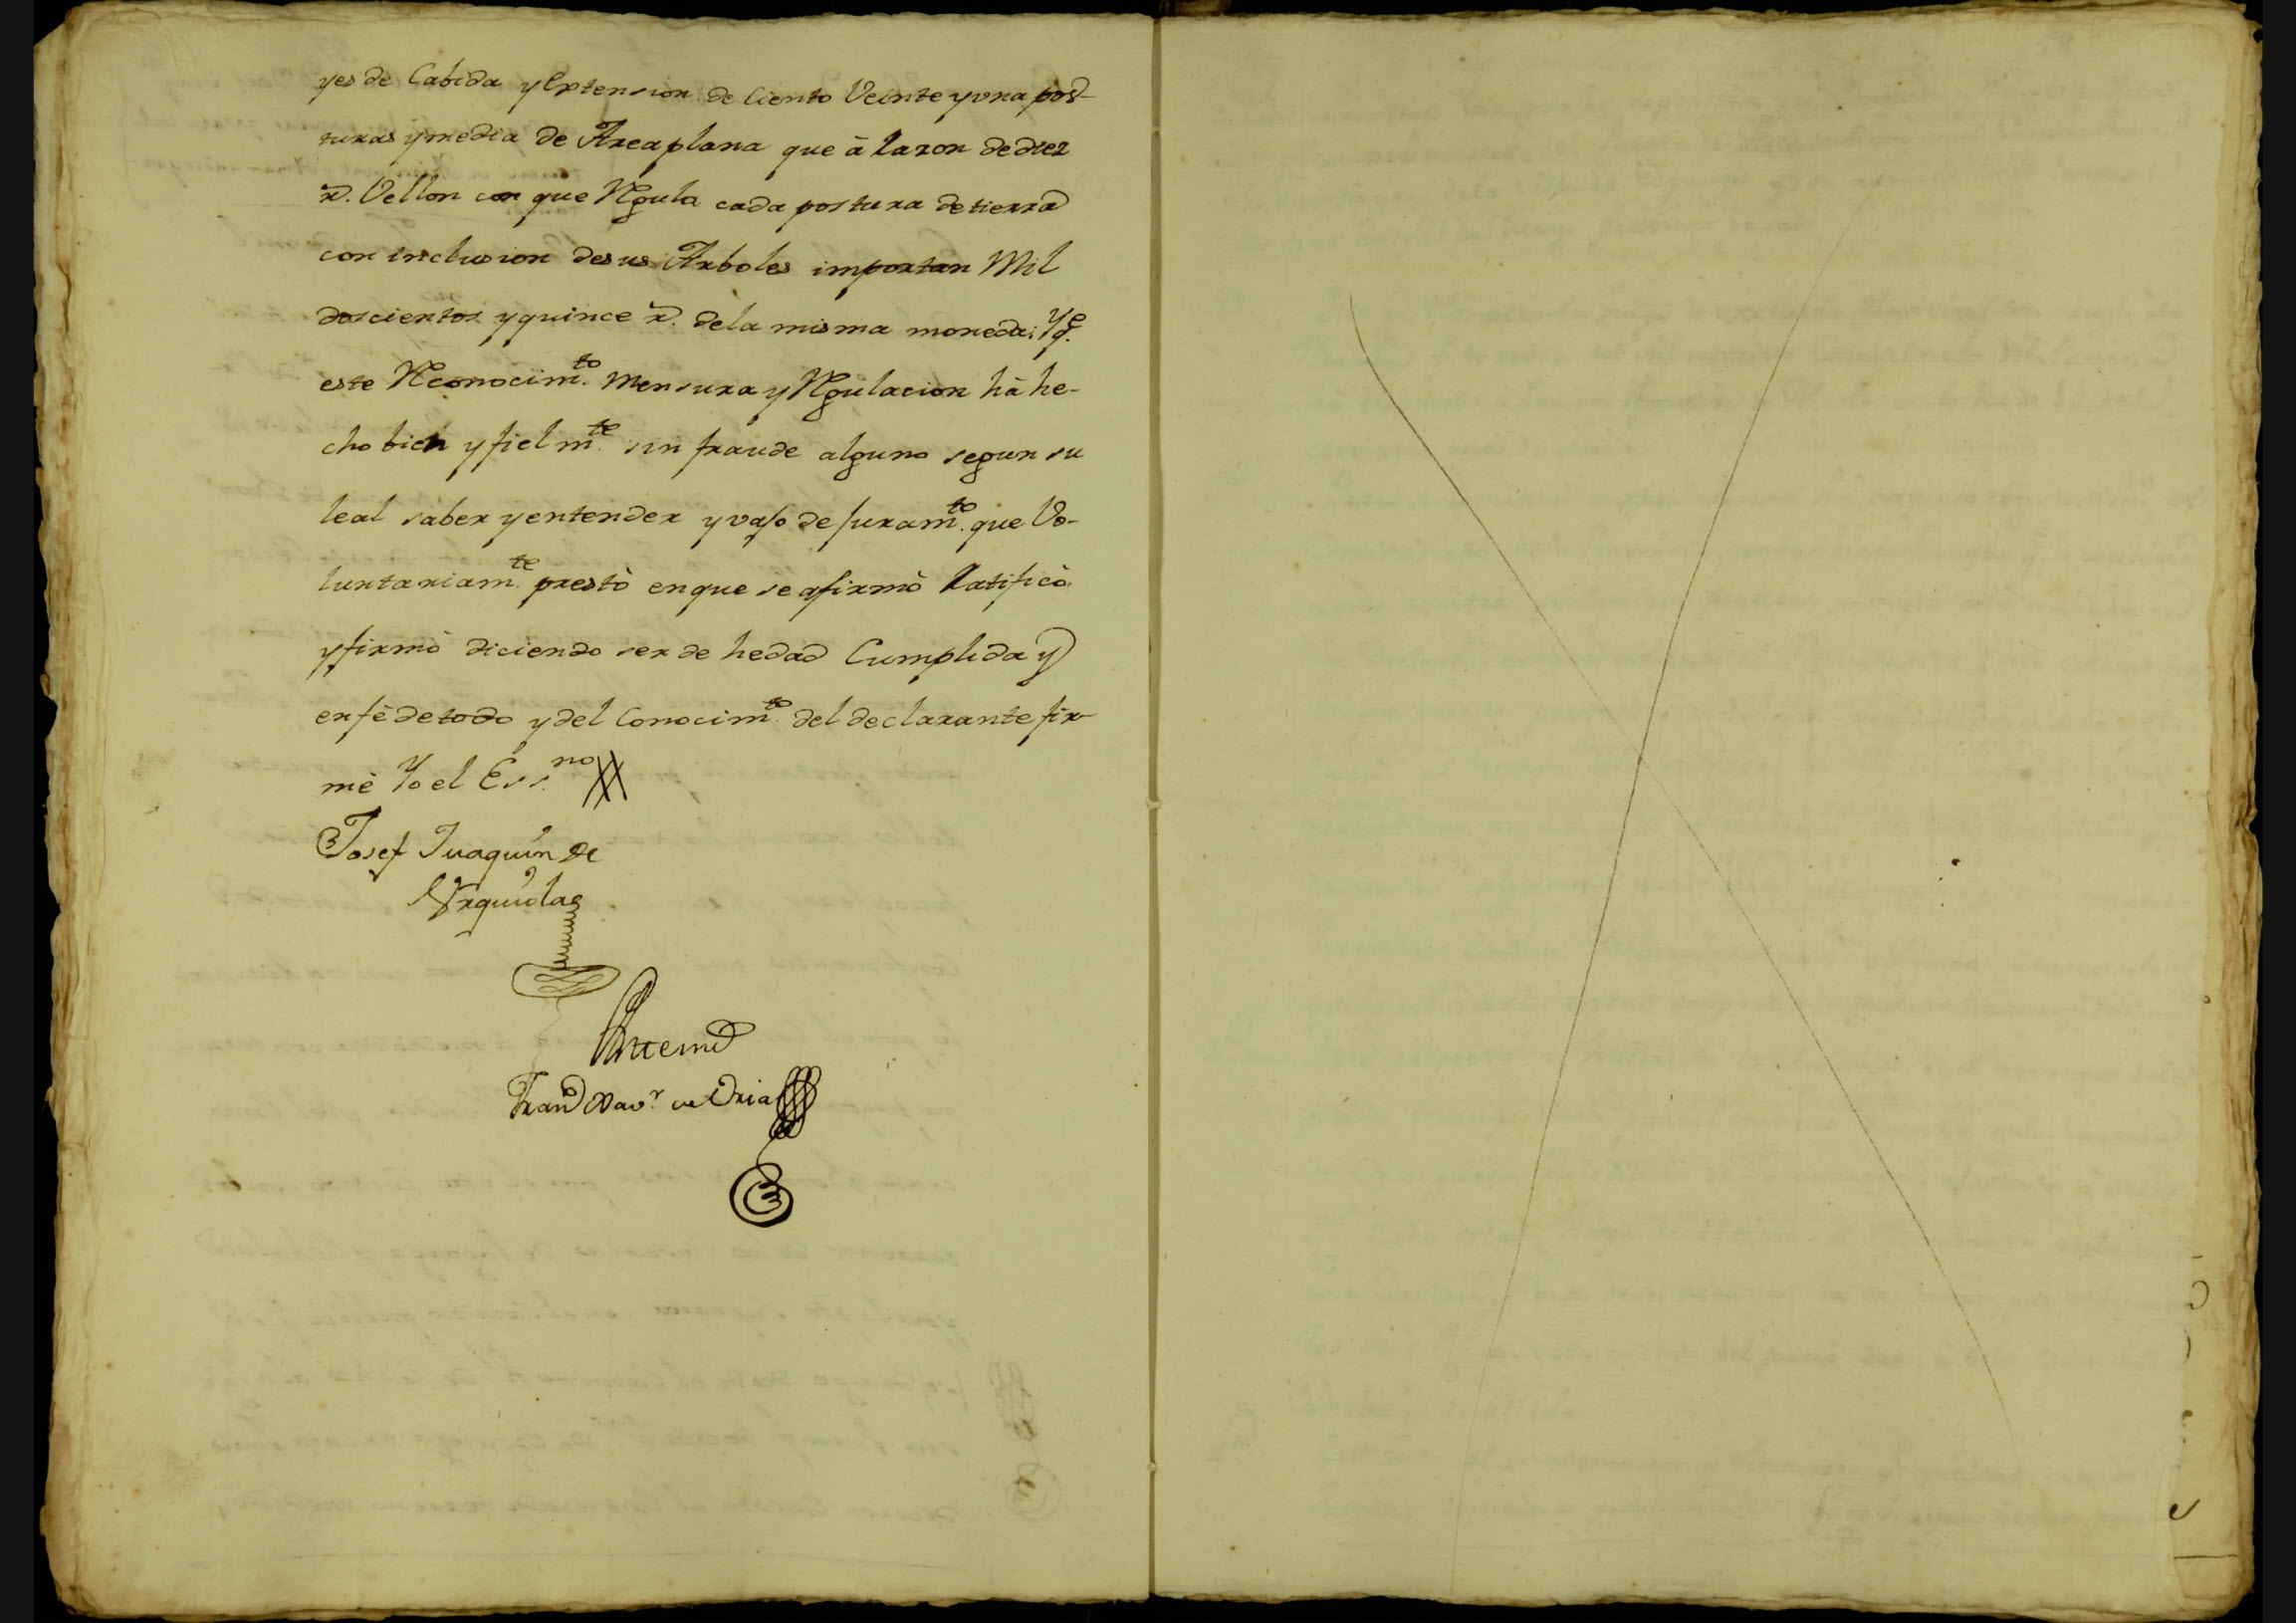 yes de Cabida y Extension de Ciento Veinte y vna pos-
turas y media de Area plana que à Razon de diez
rs. Vellon con que Regula cada postura de tierra
con inclusion de sus Arboles importan Mil
doscientos y quince rs. de la misma moneda: Y qe.
este Reconocimto. Mensura y Regulacion hà he-
cho bien y fielmte. sin fraude alguno segun su
leal saber y entender y vajo de juramto. que Vo-
luntariamte. prestò en que se afirmò Ratificò
y firmò diciendo ser de hedad Cumplida y
en fè de todo y del Conocimto. del declarante fir-
mè Yo el Essno.
Josef Juaquin de
Vrquiola
Antemi
Franco Xavr. de Oria